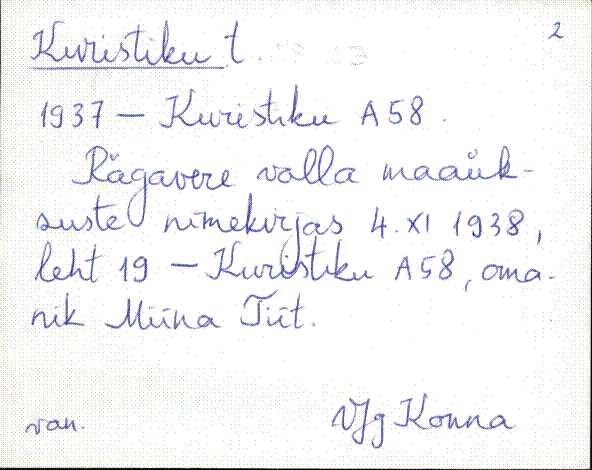 Kuristiku t. 2
1937 — Kuristiku A 58.
Rägavere valla maaük-
suste nimekirjas 4. XI 1938,
leht 19 — Kuristiku A 58, oma-
nik Miina Tiit.
VJg Konna
van.